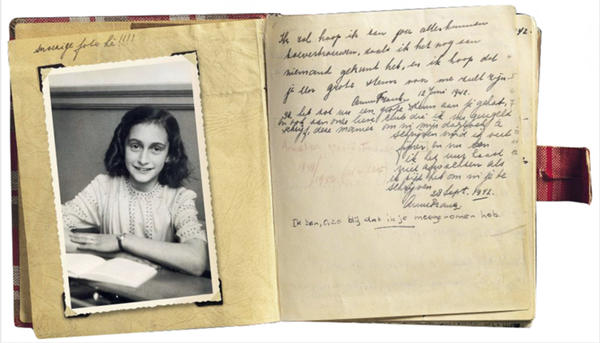 snoezige foto hè!!!!
Ik zal hoop ik aan jou alles kunnen
toevertrouwen, zoals ik het nog aan
niemand gekund heb, en ik hoop dat
je een grote steun voor me zult zijn.
Anne Frank. 12 Juni 1942.
Ik heb tot nu toe een grote steun aan je gehad,
en ook aan onze lieve club die ik nu geregeld
schrijf, deze manier om in mijn dagboek te
schrijven vind ik veel
fijner en nu kan
ik het uur haast
niet afwachten als
ik tijd heb om in je te
schrijven.
28 Sept. 1942.
Anne Frank.
Ik ben, o, zo blij dat ik je meegenomen heb.
42.